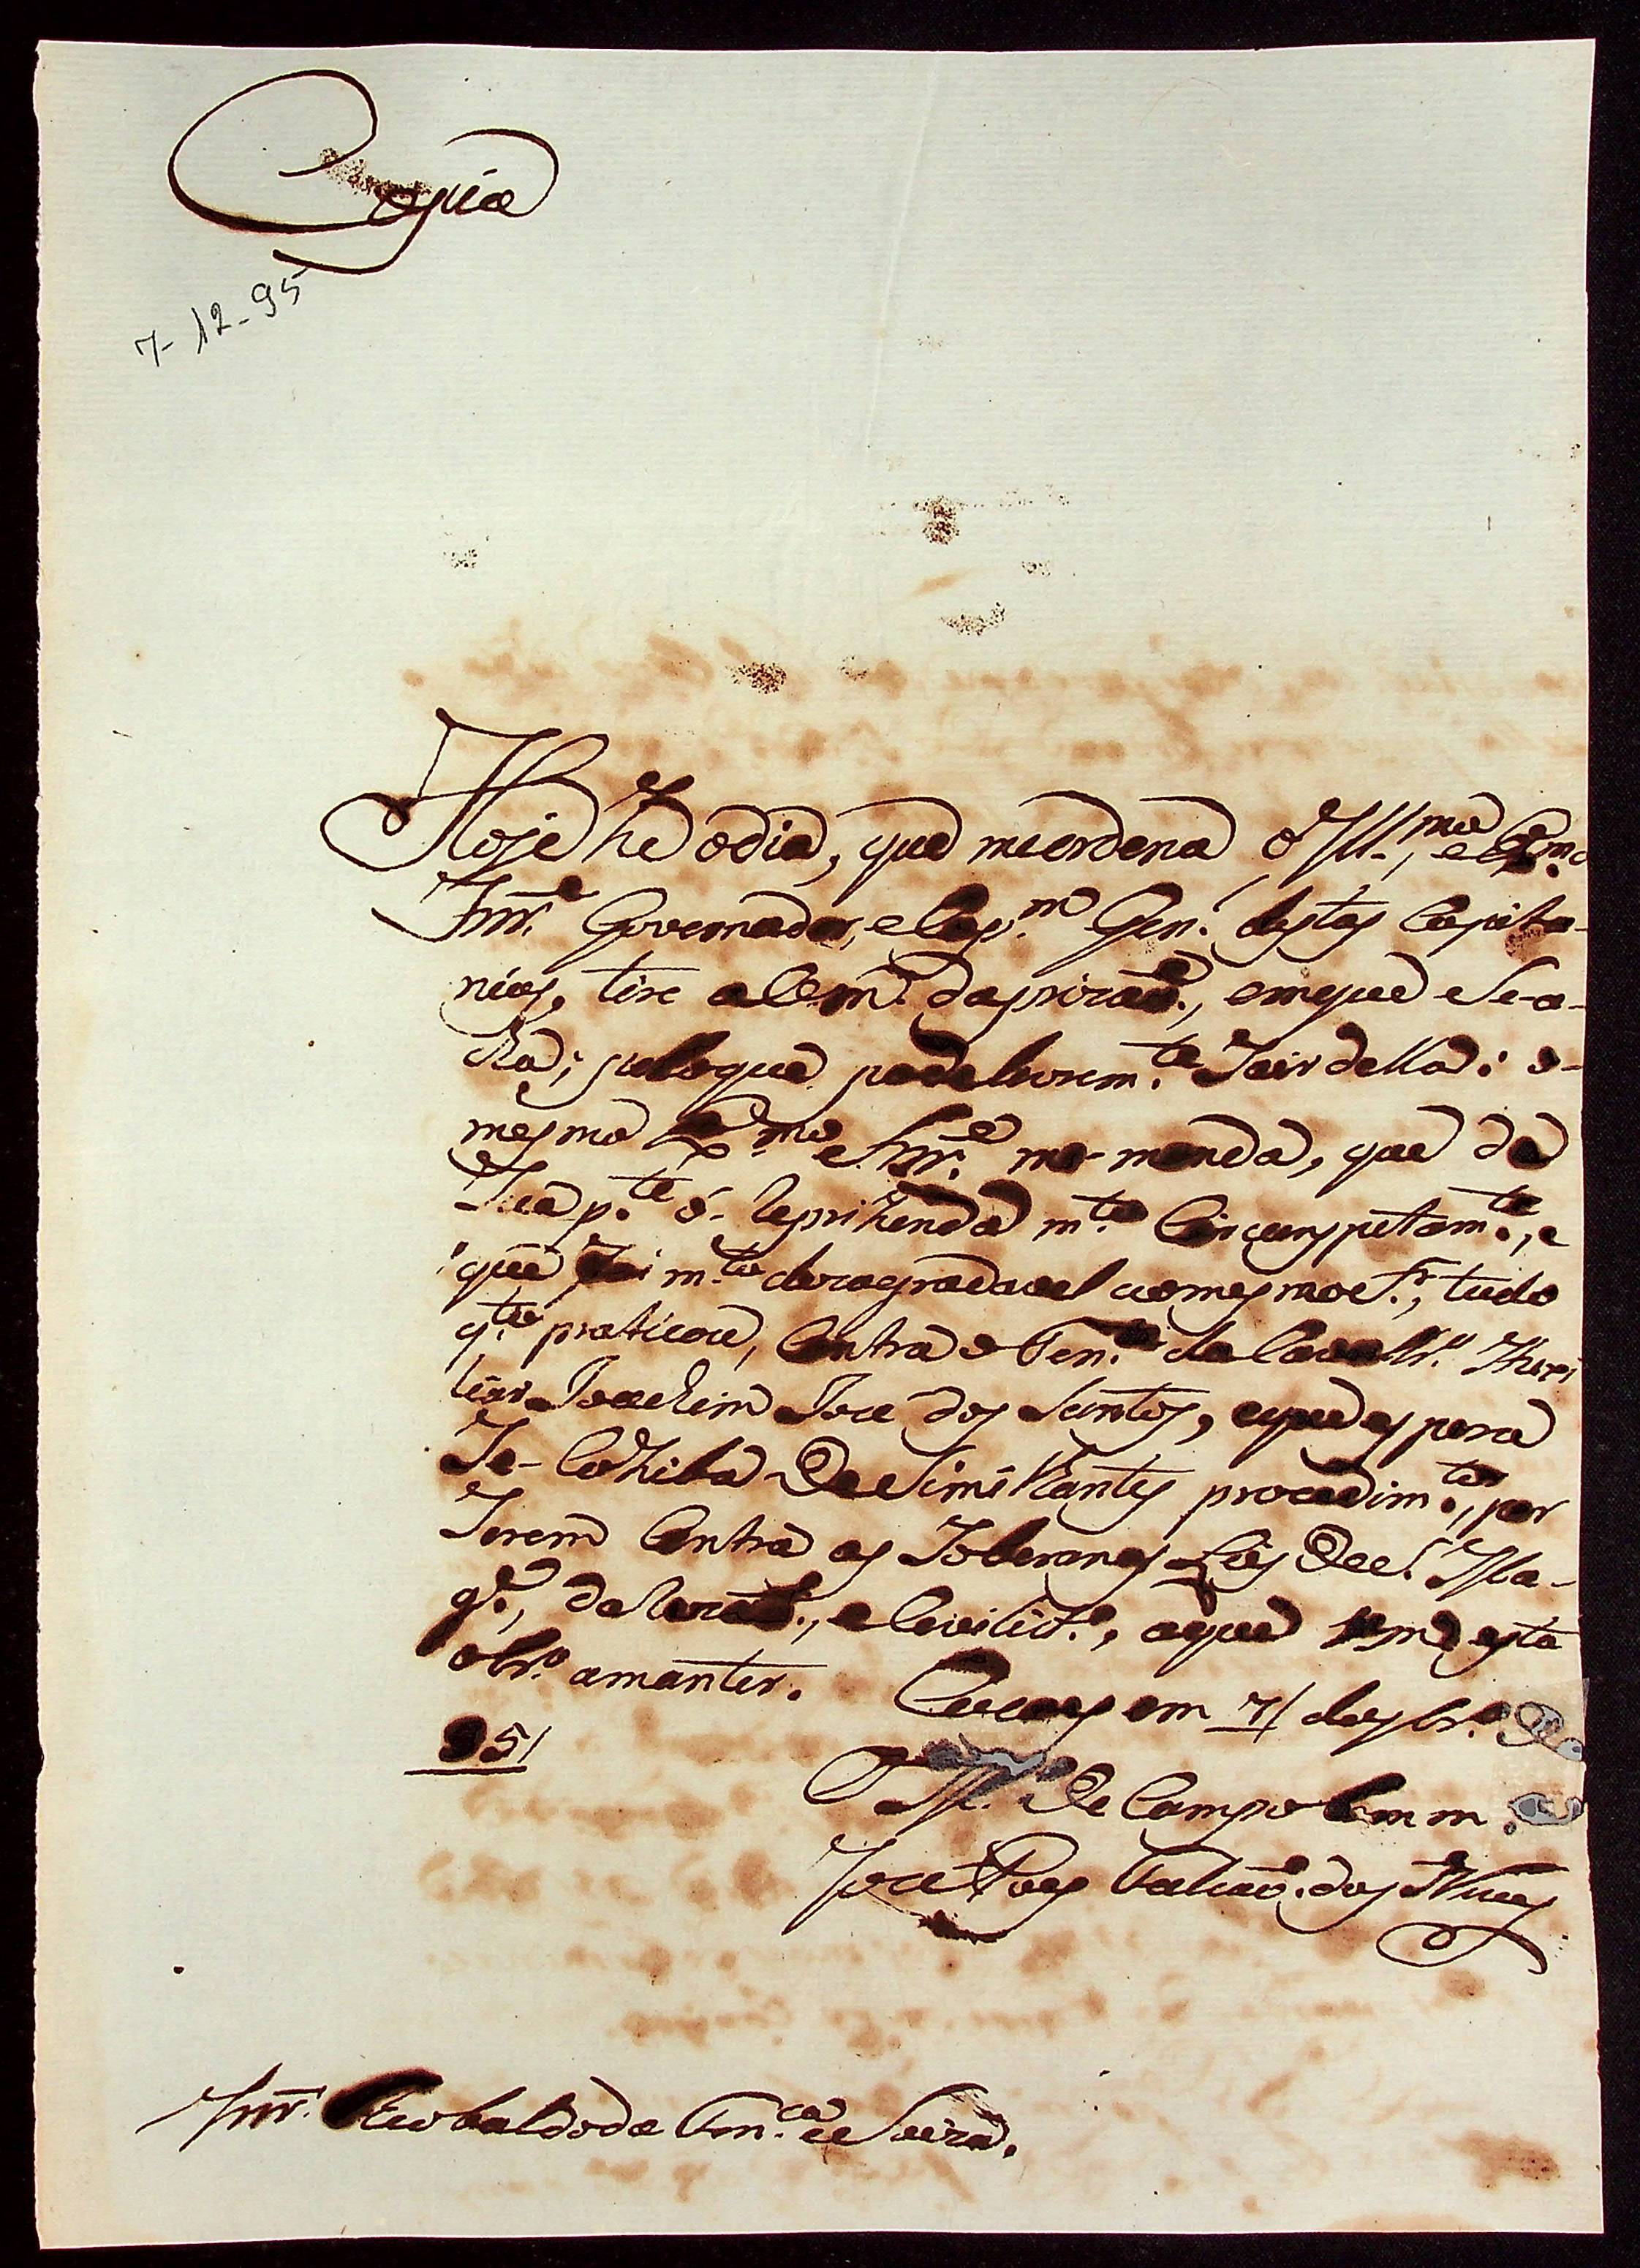 Copia
7-12-95
Hoje he odia, que meordena o Ill.mo, e Exmo
Snr.e Governador, e Cap.m Gen.l destas Capita-
nias, tire a Vm.ce daprizaõ, emque Se-a-
cha; peloque pode livrem.te Sair della: o-
mesmo Ex.mo Snr.e me-manda, que da
Sua p.te o-reprihenda m.to Circunspetam.te, e
que foi m.to dezagradavel aomesmo S.r, tudo
q.to praticou, Contra o Ten.te de Cavallr.a
Joachim Joze dos Santos, eque espera
Se-Cohiba De Similhantes procedim.tos, por
Serem Contra as Soberanas Leis De S. Ma-
g.e, da razaõ, e Civilid.e, aque Vm.ce esta
obr.o amanter. Cueiras em 7/ dezbr.o
95/
O M.e De Campo Comm.
Joze Paes Falcaõ das Neves
Snr. Teobaldo da Fon.ca e Souza.